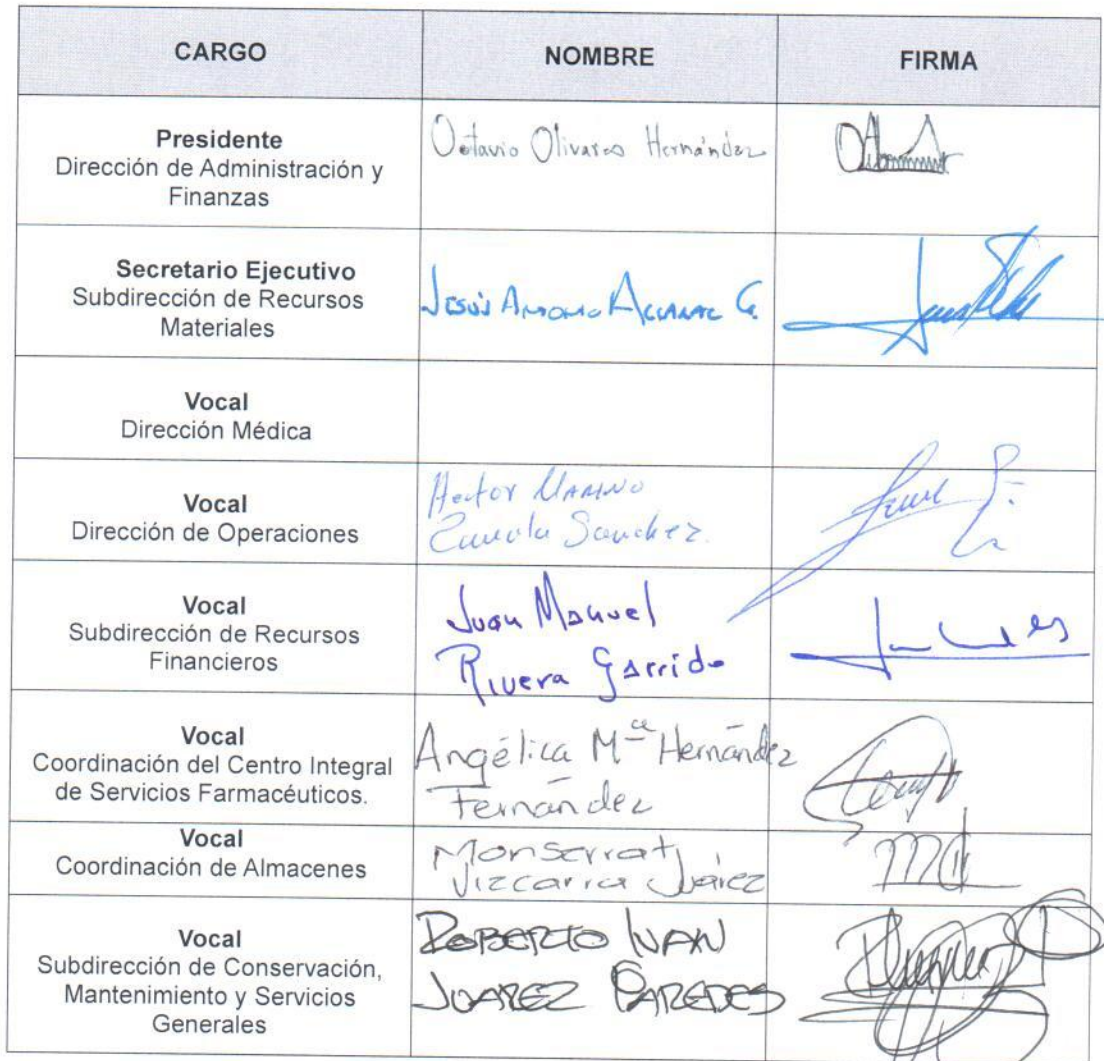 CARGO NOMBRE FIRMA
Presidente
Dirección de Administración y
Finanzas
Octavio Olivares Hernández
Secretario Ejecutivo
Subdirección de Recursos
Materiales
Jesús Antonio G.
Vocal
Dirección Médica
Vocal
Dirección de Operaciones
Hector
Sanchez.
Vocal
Subdirección de Recursos
Financieros
Juan Manuel
Rivera Garrido
Vocal
Coordinación del Centro Integral
de Servicios Farmacéuticos.
Angélica Mª Hernández
Fernández
Vocal
Coordinación de Almacenes
Monserrat
Vizcarra Juárez
Vocal
Subdirección de Conservación,
Mantenimiento y Servicios
Generales
ROBERTO IVAN
JUAREZ PAREDES